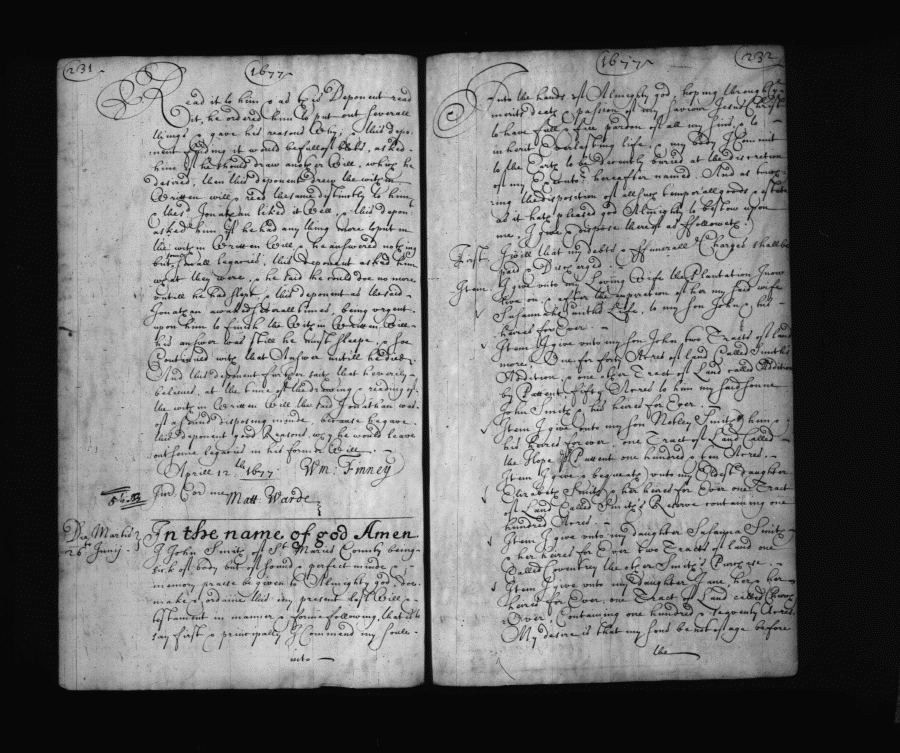 231
1677
Read it to him & as this Deponent read
it, he ordered him to put out severall
things & gave his reasons why, this depo-
nent finding it would be full of blots, asked
him if he should draw another Will, which he
desired, then this deponent drew the within
Written will & read the same distinctly to him
& the sd Jonathan liked it Well, & this depont
asked him if he had any thing more to put in
the within Written Will, he answered nothing
but small legacies, this deponent asked him
what they were, & he said he could doe no more
untill he had slept, & this deponent at the said
Jonathan awaked severall times, being urgent
upon him to finish the Within Written Will
his answer was still he must sleepe, & soe
Continued with that Answer untill he died
And this deponent further saith that he verily
believes, at the time of the drawing & reading of
the within Written Will the said Jonathan was
of a sound disposing minde, because he gave
this deponent good Reasons why he would leave
out some legacies in his former Will
Aprill 12th 1677 Wm. Finney
Jur. Cor. me Matt: Warde
In the name of god Amen
Die Martis
26th Junij
I John Smith of St Maries County being
sick of body but of sound & perfect minde &
memory praise be given to Almighty god, doe
make & ordaine this my present last Will &
testament in manner & forme following, that is to
say first & principally I Commend my soule
into
1677
232
Into the hands of Almighty god, hoping through ye
meritts death & passion of my Saviour Jesus Christ
to have full & free pardon of all my sins & to
inherit Everlasting life, & my body I Commit
to the Earth to be decently buried at the discretion
of my Executor hereafter named. And as touch-
ing the disposition of all such temporall goods & estate
as it hath pleased god Almighty to bestow upon
me, I give & dispose thereof as followeth
First I will that my debts & funerall Charges shall be
paid & Discharged
Item I give unto my Loving Wife the Plantation I now
live on & after the expiration of her my said wife
Susannah naturall Life, to my son John & his
heires for Ever
Item I give unto my son John two Tracts of land
more, One for forty Acres of land Called Smiths
Addition, & one other Tract of Land called Addition
by Pattent fifty Acres to him my said sonne
John Smith & his heires for Ever
Item I give unto my son Notley Smith & him &
his heires for ever, one Tract of Land Called
the Hope by Pattent one hundred & ten Acres
Item I give & bequeath unto my Eldest Daughter
Elizabeth Smith & her heires for Ever one Tract
of Land Called Smiths Reserve containing one
hundred Acres
Item I give unto my daughter Susanna Smith
& her heires for Ever two Tracts of land one
Called Coventrey the other Smiths Purchase
Item I give unto my Daughter Jane her & her
heires for Ever, one Tract of Land called
Over, Containing one hundred & seaventy Acres
My desire is that my sons be not of age before
the